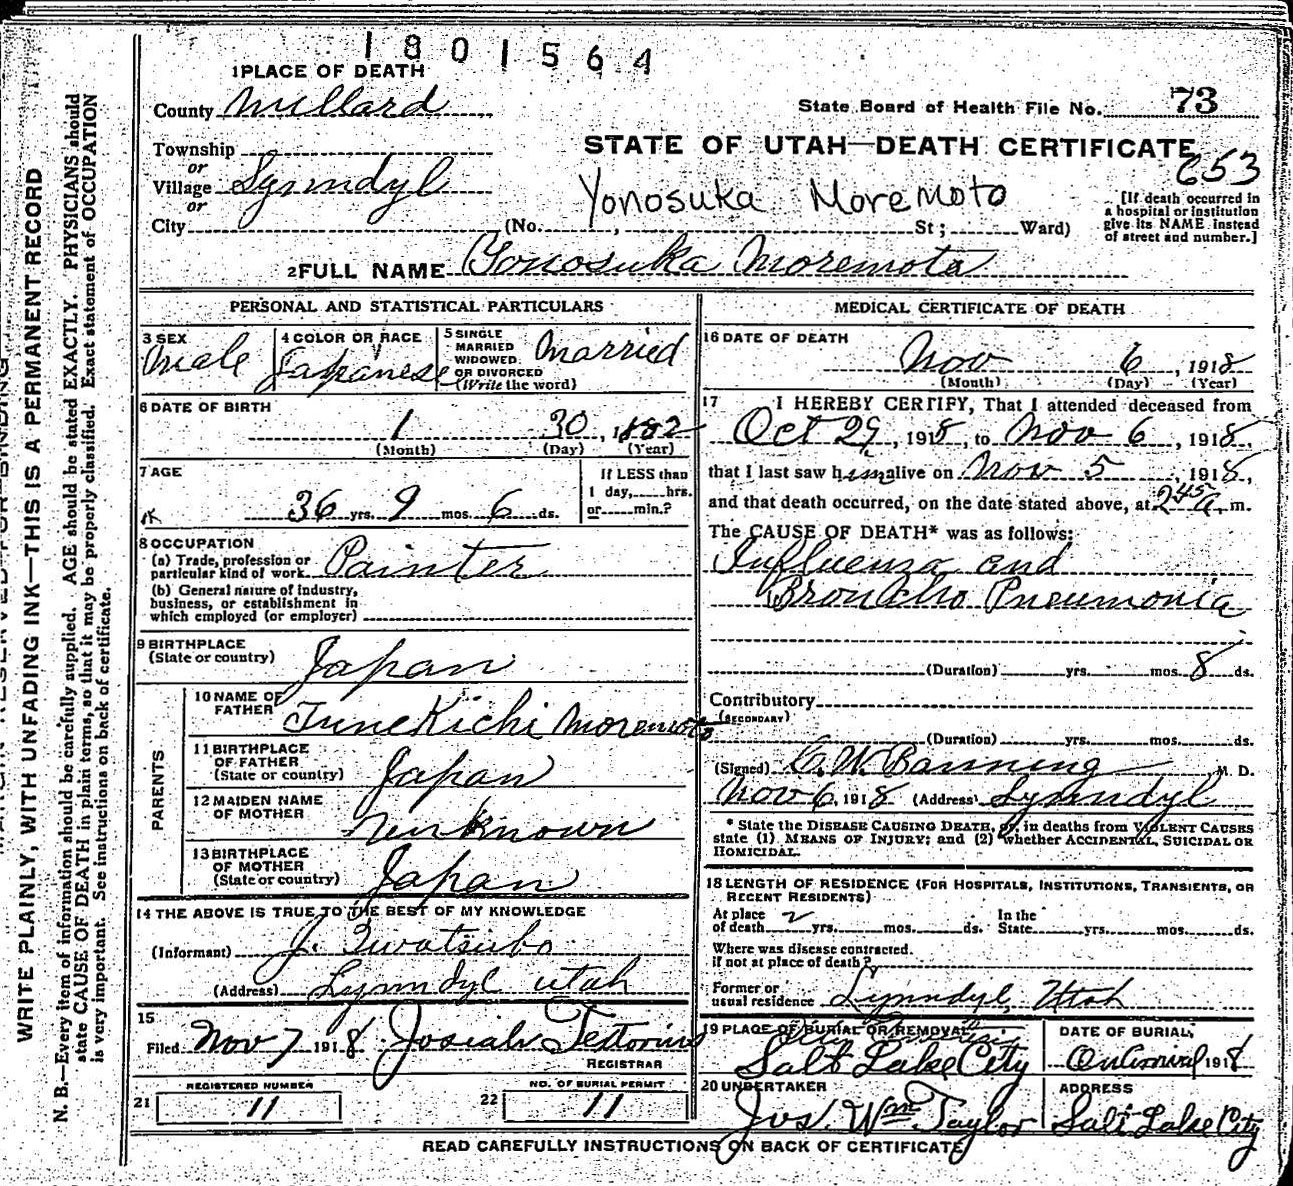 1801564
1 PLACE OF DEATH
County Millard
State Board of Health File No. 73
Township
or
Village Lynndyl
or
City
STATE OF UTAH—DEATH CERTIFICATE
653
Yonosuka Moremoto
(No. , St; Ward)
[If death occurred in
a hospital or institution
give its NAME instead
of street and number.]
2 FULL NAME Yonosuka Moremoto
PERSONAL AND STATISTICAL PARTICULARS
3 SEX
Male
4 COLOR OR RACE
Japanese
5 SINGLE
MARRIED
WIDOWED
OR DIVORCED
(Write the word)
Married
6 DATE OF BIRTH
1 30, 1882
(Month) (Day) (Year)
7 AGE
36 yrs. 9 mos. 6 ds.
If LESS than
1 day, hrs.
or min.?
8 OCCUPATION
(a) Trade, profession or
particular kind of work Painter
(b) General nature of industry,
business, or establishment in
which employed (or employer)
9 BIRTHPLACE
(State or country) Japan
PARENTS
10 NAME OF
FATHER TuneKichi Moremoto
11 BIRTHPLACE
OF FATHER
(State or country) Japan
12 MAIDEN NAME
OF MOTHER
13 BIRTHPLACE
OF MOTHER
(State or country) Japan
14 THE ABOVE IS TRUE TO THE BEST OF MY KNOWLEDGE
(Informant) J. Iwatsubo
(Address) Lynndyl Utah
15
Filed Nov 7 1918 Josiah
REGISTRAR
REGISTERED NUMBER
21 11
NO. OF BURIAL PERMIT
22 11
MEDICAL CERTIFICATE OF DEATH
16 DATE OF DEATH
Nov 6, 1918
(Month) (Day) (Year)
17 I HEREBY CERTIFY, That I attended deceased from
Oct 29, 1918, to Nov 6, 1918,
that I last saw him alive on Nov 5, 1918,
and that death occurred, on the date stated above, at 245 a. m.
The CAUSE OF DEATH* was as follows:
Influenza and
Broncho Pneumonia
(Duration) yrs. mos. 8 ds.
Contributory
(SECONDARY)
(Duration) yrs. mos. ds.
(Signed) C. W. Banning M. D.
Nov 6, 1918 (Address) Lynndyl
* State the DISEASE CAUSING DEATH, or, in deaths from VIOLENT CAUSES
state (1) MEANS OF INJURY; and (2) whether ACCIDENTAL, SUICIDAL OR
HOMICIDAL.
18 LENGTH OF RESIDENCE (FOR HOSPITALS, INSTITUTIONS, TRANSIENTS, OR
RECENT RESIDENTS)
At place
of death 2 yrs. mos. ds.
In the
State yrs. mos. ds.
Where was disease contracted,
if not at place of death?
Former or
usual residence Lynndyl, Utah
19 PLACE OF BURIAL OR REMOVAL
Salt Lake City
DATE OF BURIAL
On Arrival 1918
20 UNDERTAKER
Jos. Wm Taylor
ADDRESS
Salt Lake City
READ CAREFULLY INSTRUCTIONS ON BACK OF CERTIFICATE
WRITE PLAINLY, WITH UNFADING INK—THIS IS A PERMANENT RECORD
N. B.—Every item of information should be carefully supplied. AGE should be stated EXACTLY. PHYSICIANS should
state CAUSE OF DEATH in plain terms, so that it may be properly classified. Exact statement of OCCUPATION
is very important. See instructions on back of certificate.